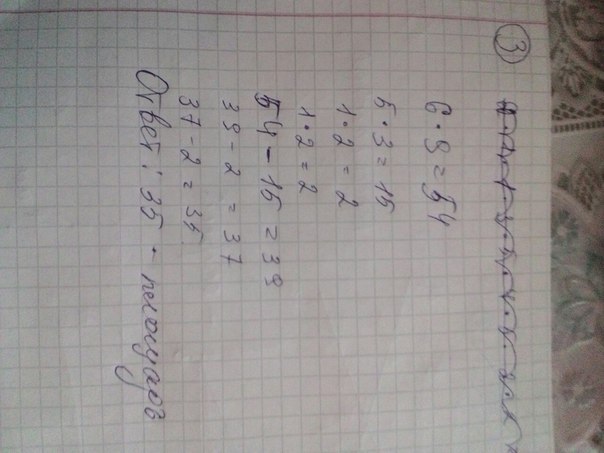 3
6 · 9 = 54
5 · 3 = 15
1 · 2 = 2
1 · 2 = 2
54 - 15 = 39
39 - 2 = 37
37 - 2 = 35
Ответ: 35 - площадь